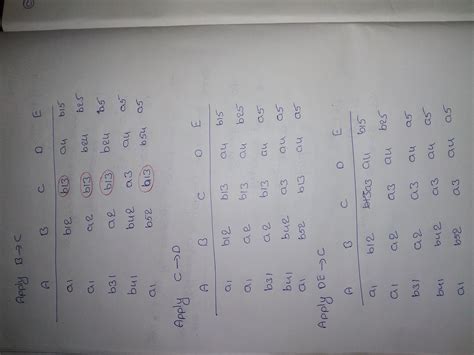 Apply B→C
A B C D E
a1 b12 b13 a4 b15
a1 a2 b13 b24 b25
b31 a2 b13 b24 b5
b41 b42 a3 a4 a5
a1 b52 b13 b54 a5
Apply C→D
A B C D E
a1 b12 b13 a4 b15
a1 a2 b13 a4 b25
b31 a2 b13 a4 a5
b41 b42 a3 a4 a5
a1 b52 b13 a4 a5
Apply DE→C
A B C D E
a1 b12 a3 a4 b15
a1 a2 a3 a4 b25
b31 a2 a3 a4 a5
b41 b42 a3 a4 a5
a1 b52 a3 a4 a5